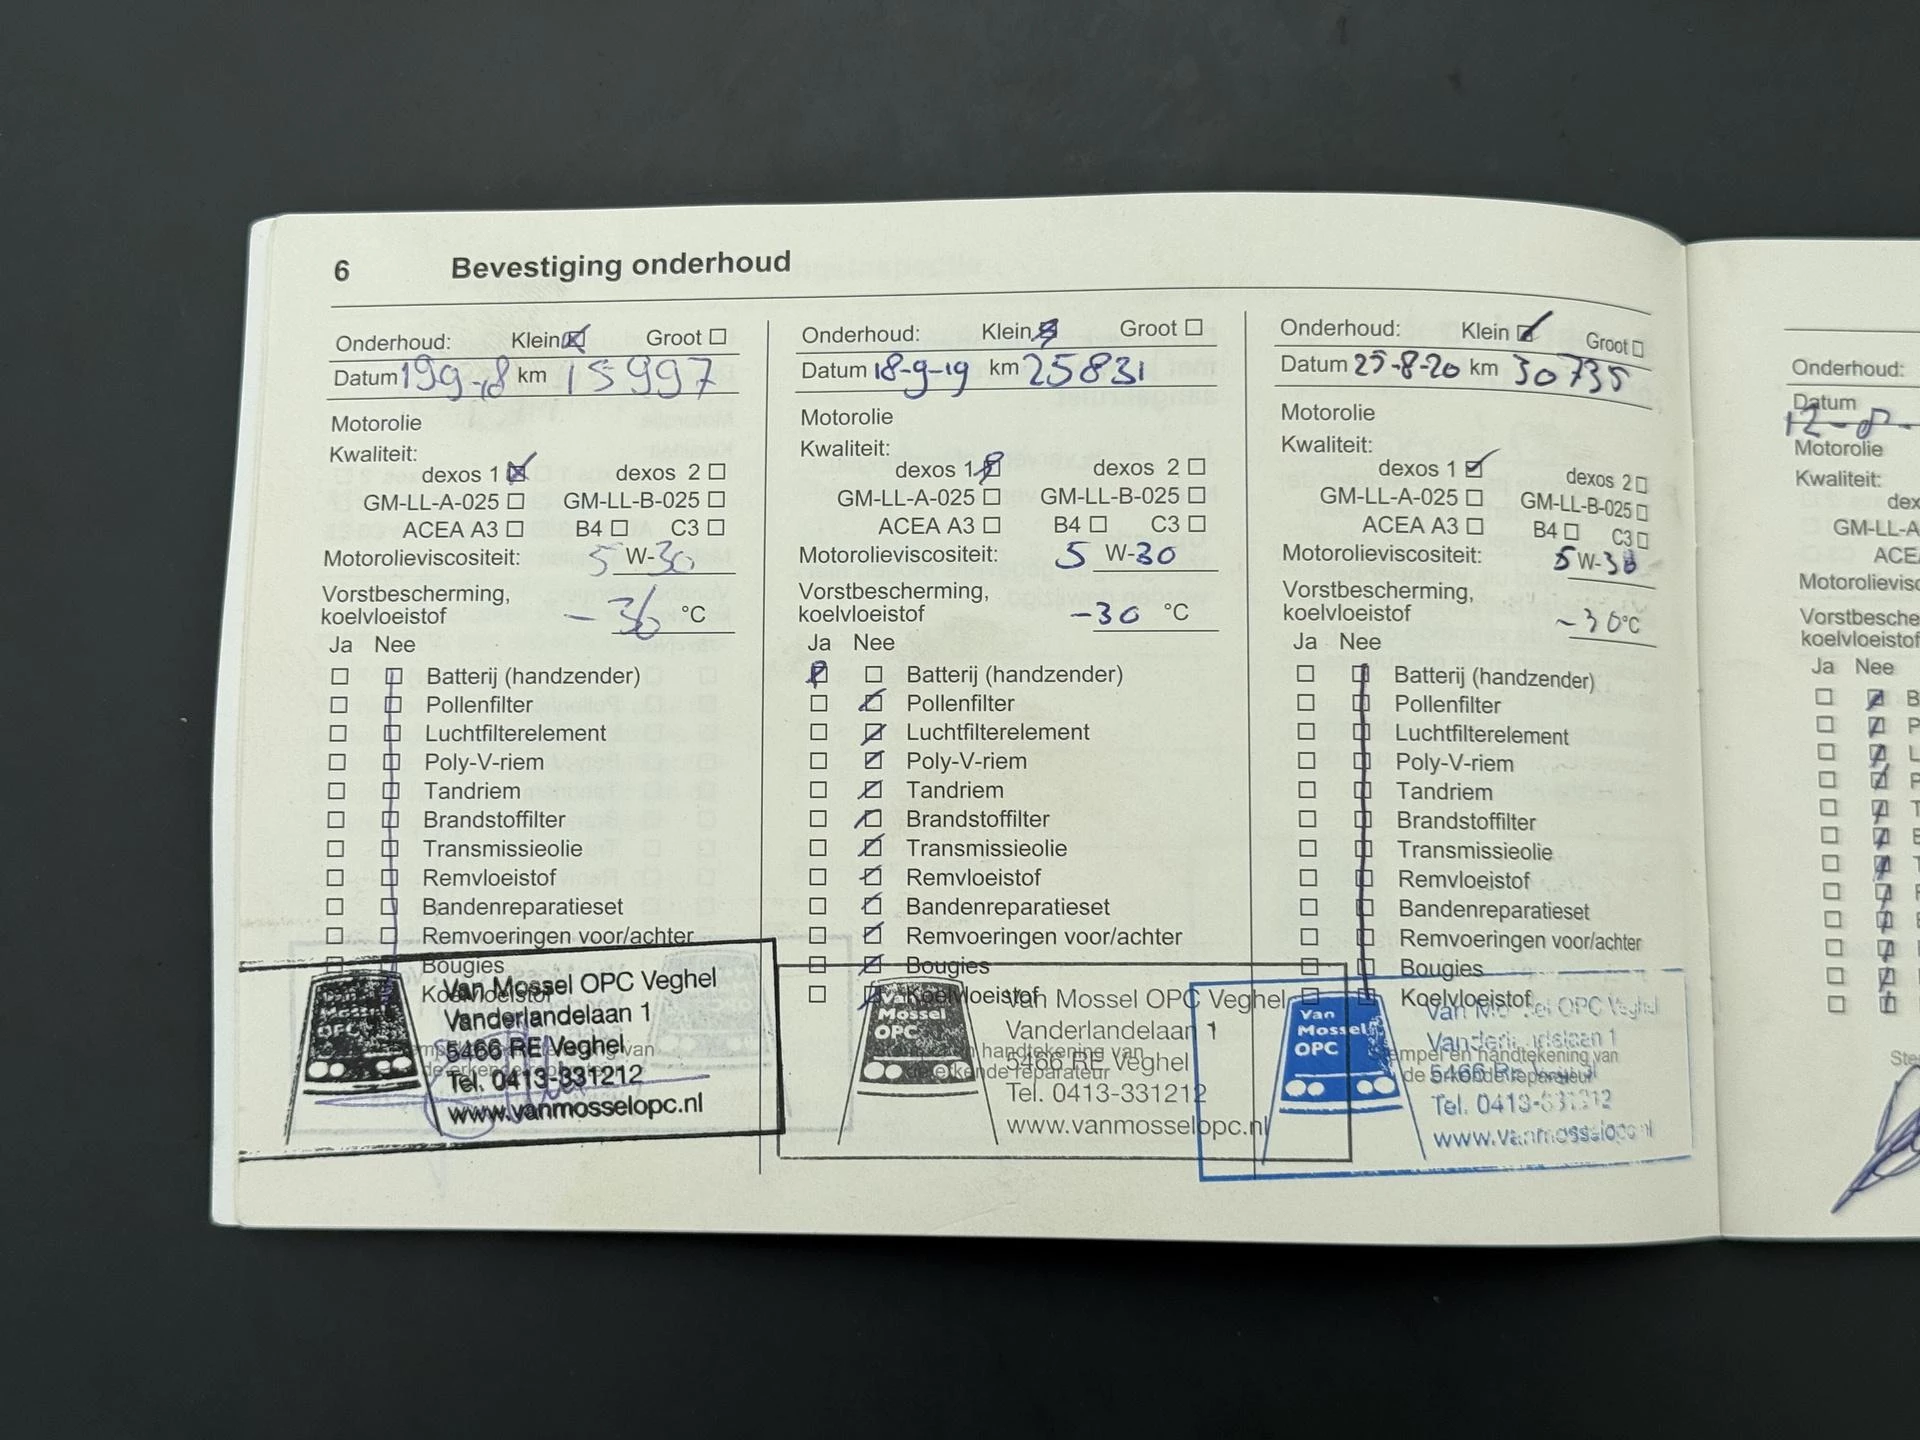 6 Bevestiging onderhoud
Onderhoud: Klein Groot
Datum 19 9-18 km 15997
Motorolie
Kwaliteit:
dexos 1 dexos 2
GM-LL-A-025 GM-LL-B-025
ACEA A3 B4 C3
Motorolieviscositeit: 5 W-30
Vorstbescherming,
koelvloeistof -36 °C
Ja Nee
Batterij (handzender)
Pollenfilter
Luchtfilterelement
Poly-V-riem
Tandriem
Brandstoffilter
Transmissieolie
Remvloeistof
Bandenreparatieset
Remvoeringen voor/achter
Bougies
Koelvloeistof
Van Mossel OPC Veghel
Vanderlandelaan 1
5466 RE Veghel
Tel. 0413-331212
www.vanmosselopc.nl
Onderhoud: Klein Groot
Datum 18-9-19 km 25831
Motorolie
Kwaliteit:
dexos 1 dexos 2
GM-LL-A-025 GM-LL-B-025
ACEA A3 B4 C3
Motorolieviscositeit: 5 W-30
Vorstbescherming,
koelvloeistof -30 °C
Ja Nee
Batterij (handzender)
Pollenfilter
Luchtfilterelement
Poly-V-riem
Tandriem
Brandstoffilter
Transmissieolie
Remvloeistof
Bandenreparatieset
Remvoeringen voor/achter
Bougies
Koelvloeistof
handtekening van
de erkende reparateur
Van
Mossel
OPC
Van Mossel OPC Veghel
Vanderlandelaan 1
5466 RE Veghel
Tel. 0413-331212
www.vanmosselopc.nl
Onderhoud: Klein Groot
Datum 25-8-20 km 30735
Motorolie
Kwaliteit:
dexos 1 dexos 2
GM-LL-A-025 GM-LL-B-025
ACEA A3 B4 C3
Motorolieviscositeit: 5 W-30
Vorstbescherming,
koelvloeistof -30 °C
Ja Nee
Batterij (handzender)
Pollenfilter
Luchtfilterelement
Poly-V-riem
Tandriem
Brandstoffilter
Transmissieolie
Remvloeistof
Bandenreparatieset
Remvoeringen voor/achter
Bougies
Koelvloeistof
Stempel en handtekening van
de erkende reparateur
Van
Mossel
OPC
Van Mossel OPC Veghel
Vanderlandelaan 1
5466 RE Veghel
Tel. 0413-331212
www.vanmosselopc.nl
Onderhoud:
Datum
12-8-
Motorolie
Kwaliteit:
dex
GM-LL-A
ACEA
Motorolievisc
Vorstbesche
koelvloeistof
Ja Nee
B
P
L
P
T
B
T
R
Ste